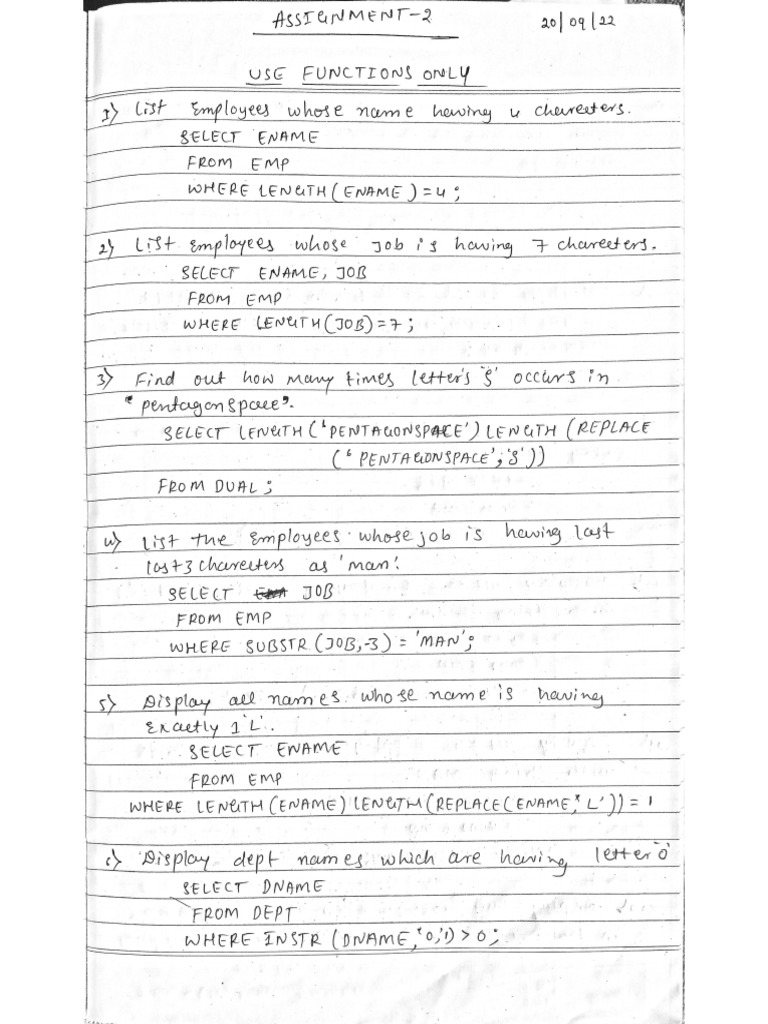 ASSIGNMENT-2
20/09/22
USE FUNCTIONS ONLY
1) List Employees whose name having 4 chareeters.
SELECT ENAME
FROM EMP
WHERE LENGTH(ENAME)=4;
2) List Employees whose Job is having 7 chareeters.
SELECT ENAME, JOB
FROM EMP
WHERE LENGTH(JOB)=7;
3) Find out how many times letter's 'S' occurs in
"pentagonspace".
SELECT LENGTH('PENTAGONSPACE') LENGTH (REPLACE
('PENTAGONSPACE','S'))
FROM DUAL;
4) List the Employees whose job is having last
last 3 chareeters as 'man'.
SELECT JOB
FROM EMP
WHERE SUBSTR(JOB,-3) = 'MAN';
5) Display all names whose name is having
Exactly 1 'L'.
SELECT ENAME
FROM EMP
WHERE LENGTH(ENAME) LENGTH(REPLACE(ENAME,'L')) = 1
6) Display dept names which are having letter 'O'
SELECT DNAME
FROM DEPT
WHERE INSTR (DNAME,'O',1) > 0;